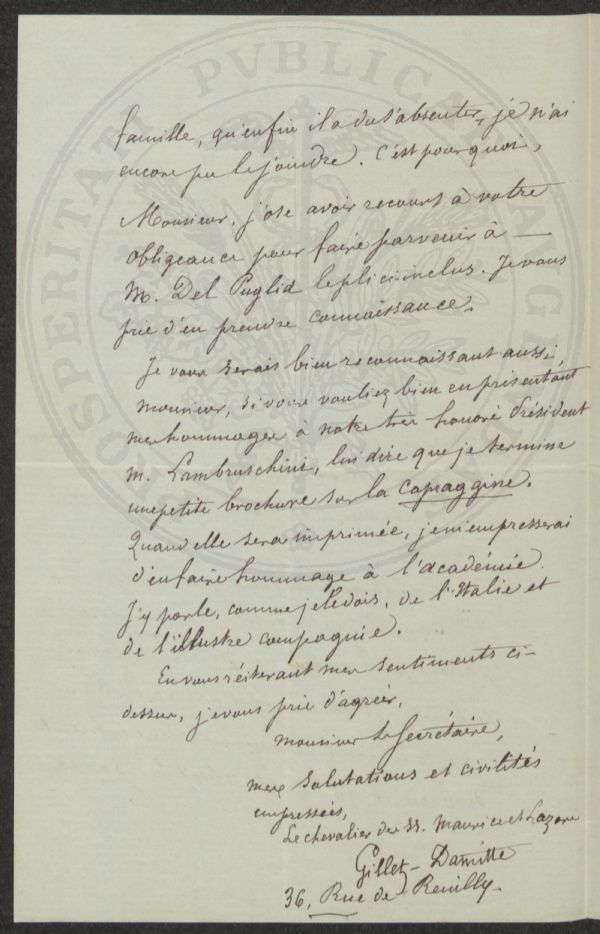 famille, qu'enfin il a dû s'absenter, je n'ai
encore pu le joindre. C'est pourquoi,
Monsieur, j'ose avoir recours à votre
obligeance pour faire parvenir à —
M. Del Puglia le pli ci-inclus. Je vous
prie d'en prendre connaissance.
Je vous serais bien reconnaissant aussi,
monsieur, si vous vouliez bien en présentant
mes hommages à notre très honoré Président
M. Lambruschini, lui dire que je termine
une petite brochure sur la capraggine.
Quand elle sera imprimée, je m'empresserai
d'en faire hommage à l'académie.
J'y parle, comme je le dois, de l'Italie et
de l'illustre compagnie.
En vous réiterant mes sentiments ci-
dessus, je vous prie d'agréer,
monsieur le Secrétaire,
mes salutations et civilités
empressées,
Le chevalier des SS. Maurice et Lazare
Gillet-Damitte
36, Rue de Reuilly.
PROSPERITATI PVBLICAE AVGE